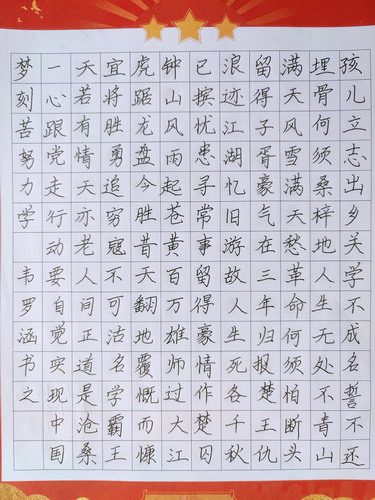 孩儿立志出乡关学不成名誓不还
埋骨何须桑梓地人生无处不青山
满天风雪满天愁革命何须怕断头
留得子胥豪气在三年归报楚王仇
浪迹江湖忆旧游故人生死各千秋
已摈忧患寻常事留得豪情作楚囚
钟山风雨起苍黄百万雄师过大江
虎踞龙盘今胜昔天翻地覆慨而慷
宜将胜勇追穷寇不可沽名学霸王
天若有情天亦老人间正道是沧桑
一心跟党走行动要自觉实现中国
梦刻苦努力学 韦罗涵书之